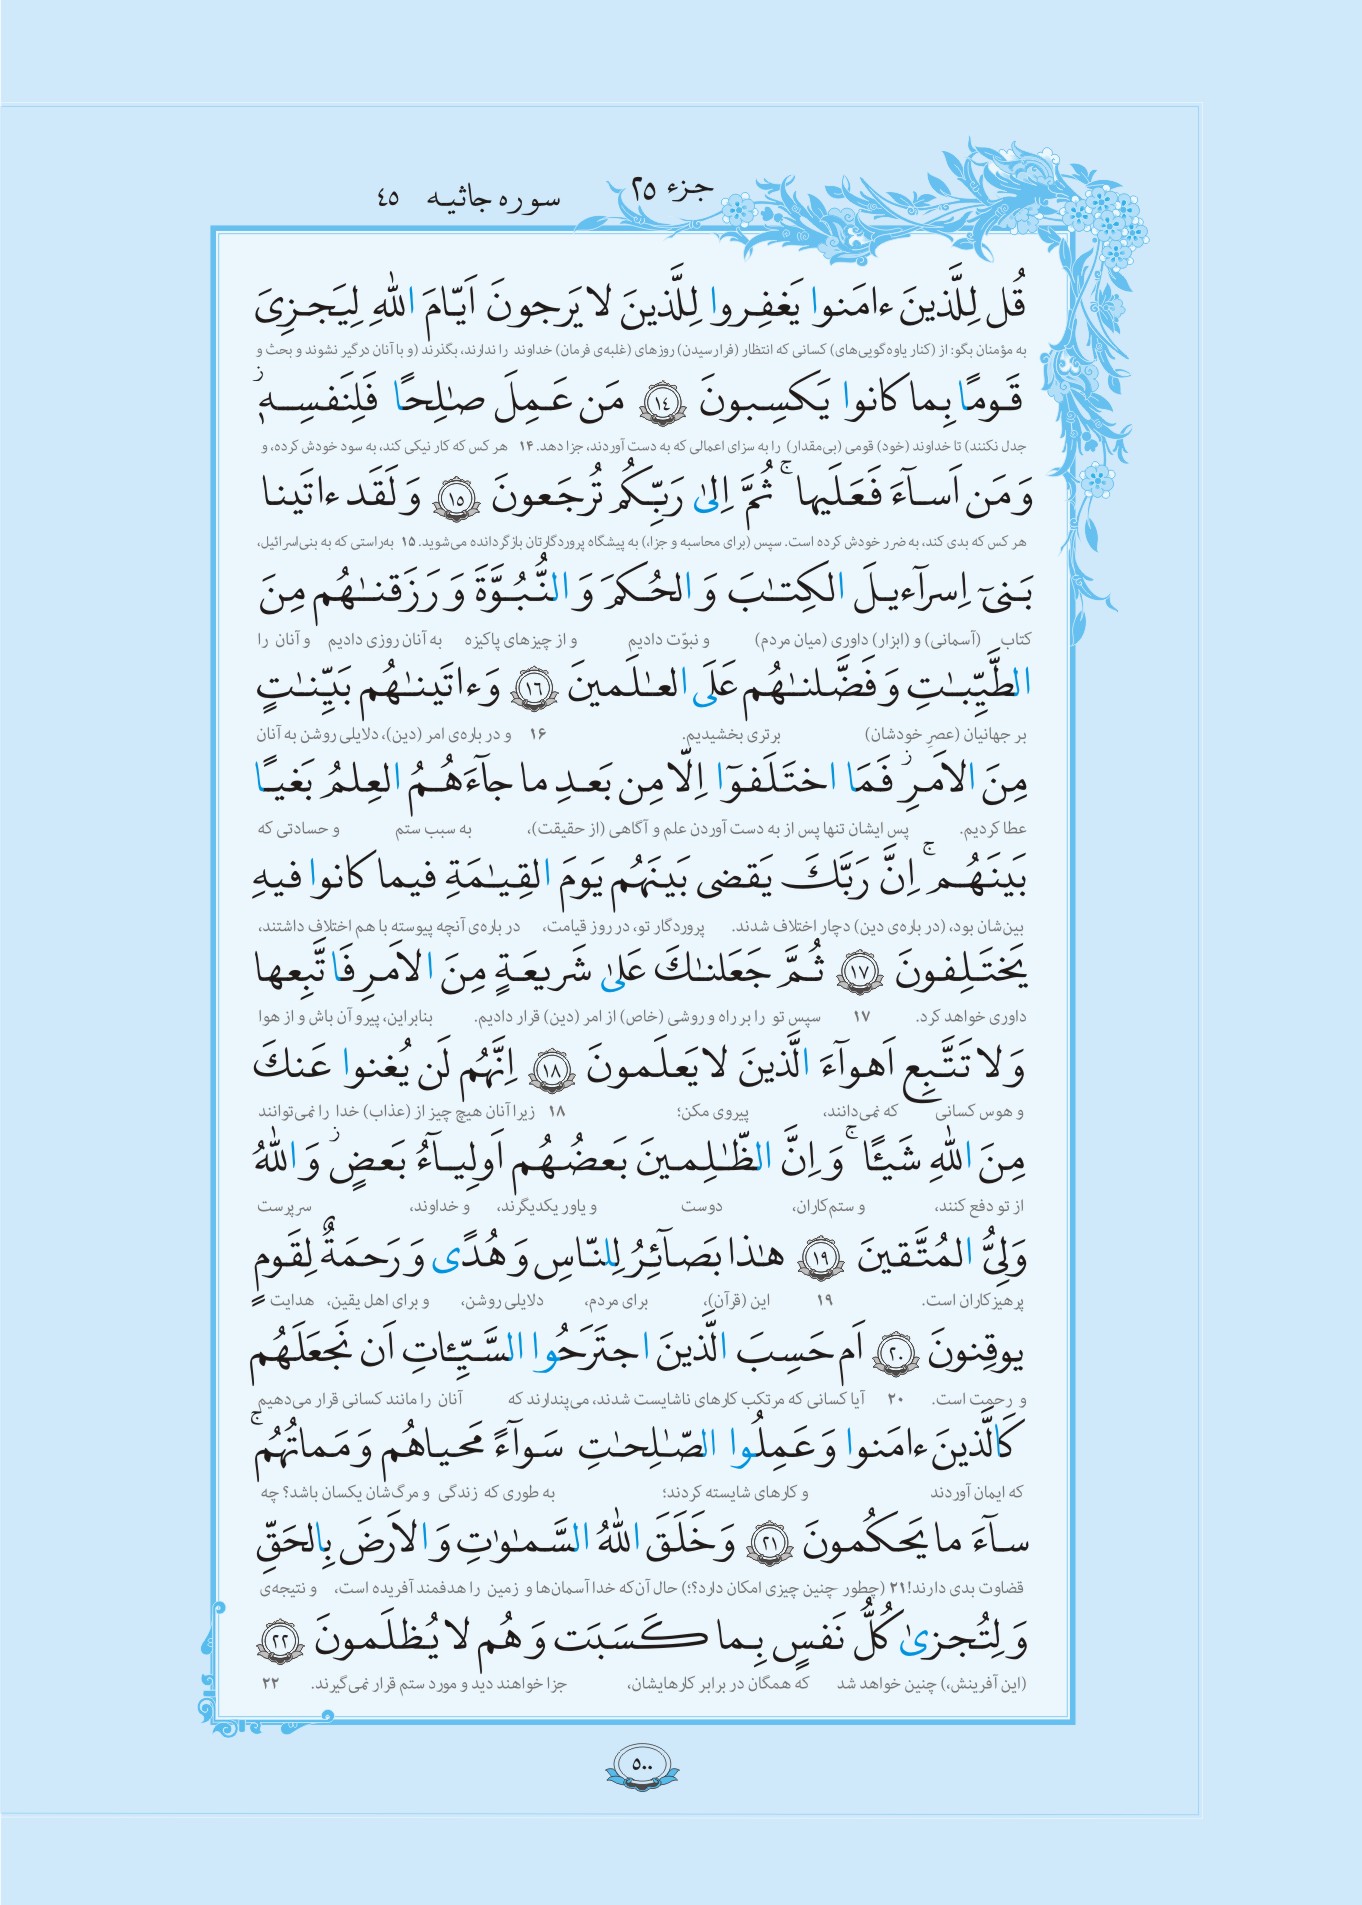 جزء ٢٥
سوره جاثیه ٤٥
قُل لِلَّذينَ ءامَنوا يَغفِروا لِلَّذينَ لا يَرجونَ اَيّامَ اللّٰهِ لِيَجزِىَ
به مؤمنان بگو: از (کنار یاوه‌گویی‌های) کسانی که انتظار (فرارسیدن) روزهای (غلبه‌ی فرمان) خداوند را ندارند، بگذرند (و با آنان درگیر نشوند و بحث و
قَومًا بِما كانوا يَكسِبونَ ﴿١٤﴾ مَن عَمِلَ صٰلِحًا فَلِنَفسِهٖ ز
جدل نکنند) تا خداوند (خود) قومی (بی‌مقدار) را به سزای اعمالی که به دست آوردند، جزا دهد. ۱۴ هر کس که کار نیکی کند، به سود خودش کرده، و
وَ مَن اَسآءَ فَعَلَيها ۚ ثُمَّ اِلىٰ رَبِّكُم تُرجَعونَ ﴿١٥﴾ وَ لَقَد ءاتَينا
هر کس که بدی کند، به ضرر خودش کرده است. سپس (برای محاسبه و جزا،) به پیشگاه پروردگارتان بازگردانده می‌شوید. ۱۵ به‌راستی که به بنی‌اسرائیل،
بَنىٓ اِسرآءيلَ الكِتٰبَ وَ الحُكمَ وَ النُّبُوَّةَ وَ رَزَقنٰهُم مِنَ
کتاب (آسمانی) و (ابزار) داوری (میان مردم) و نبوّت دادیم و از چیزهای پاکیزه به آنان روزی دادیم و آنان را
الطَّيِّبٰتِ وَ فَضَّلنٰهُم عَلَى العٰلَمينَ ﴿١٦﴾ وَ ءاتَينٰهُم بَيِّنٰتٍ
بر جهانیان (عصرِ خودشان) برتری بخشیدیم. ۱۶ و در باره‌ی امر (دین)، دلایلی روشن به آنان
مِنَ الاَمرِ ز فَمَا اختَلَفوٓا اِلّا مِن بَعدِ ما جآءَهُمُ العِلمُ بَغيًا
عطا کردیم. پس ایشان تنها پس از به دست آوردن علم و آگاهی (از حقیقت)، به سبب ستم و حسادتی که
بَينَهُم ۚ اِنَّ رَبَّكَ يَقضى بَينَهُم يَومَ القِيٰمَةِ فيما كانوا فيهِ
بین‌شان بود، (در باره‌ی دین) دچار اختلاف شدند. پروردگار تو، در روز قیامت، در باره‌ی آنچه پیوسته با هم اختلاف داشتند،
يَختَلِفونَ ﴿١٧﴾ ثُمَّ جَعَلنٰكَ عَلىٰ شَريعَةٍ مِنَ الاَمرِ فَاتَّبِعها
داوری خواهد کرد. ۱۷ سپس تو را بر راه و روشی (خاص) از امر (دین) قرار دادیم. بنابراین، پیرو آن باش و از هوا
وَ لا تَتَّبِع اَهوآءَ الَّذينَ لا يَعلَمونَ ﴿١٨﴾ اِنَّهُم لَن يُغنوا عَنكَ
و هوس کسانی که نمی‌دانند، پیروی مکن؛ ۱۸ زیرا آنان هیچ چیز از (عذاب) خدا را نمی‌توانند
مِنَ اللّٰهِ شَيـًٔا ۚ وَ اِنَّ الظّٰلِمينَ بَعضُهُم اَولِيآءُ بَعضٍ ز وَ اللّٰهُ
از تو دفع کنند، و ستم‌کاران، دوست و یاور یکدیگرند، و خداوند، سرپرست
وَلِىُّ المُتَّقينَ ﴿١٩﴾ هٰذا بَصآئِرُ لِلنّاسِ وَ هُدًى وَ رَحمَةٌ لِقَومٍ
پرهیزکاران است. ۱۹ این (قرآن)، برای مردم، دلایلی روشن، و برای اهل یقین، هدایت
يوقِنونَ ﴿٢٠﴾ اَم حَسِبَ الَّذينَ اجتَرَحُوا السَّيِّـٔاتِ اَن نَجعَلَهُم
و رحمت است. ۲۰ آیا کسانی که مرتکب کارهای ناشایست شدند، می‌پندارند که آنان را مانند کسانی قرار می‌دهیم
كَالَّذينَ ءامَنوا وَ عَمِلُوا الصّٰلِحٰتِ سَوآءً مَحياهُم وَ مَماتُهُم ۚ
که ایمان آوردند و کارهای شایسته کردند؛ به طوری که زندگی و مرگ‌شان یکسان باشد؟ چه
سآءَ ما يَحكُمونَ ﴿٢١﴾ وَ خَلَقَ اللّٰهُ السَّمٰوٰتِ وَ الاَرضَ بِالحَقِّ
قضاوت بدی دارند! ۲۱ (چطور چنین چیزی امکان دارد؟!) حال آن‌که خدا آسمان‌ها و زمین را هدفمند آفریده است، و نتیجه‌ی
وَ لِتُجزىٰ كُلُّ نَفسٍ بِما كَسَبَت وَ هُم لا يُظلَمونَ ﴿٢٢﴾
(این آفرینش،) چنین خواهد شد که همگان در برابر کارهایشان، جزا خواهند دید و مورد ستم قرار نمی‌گیرند. ۲۲
٥٠٠